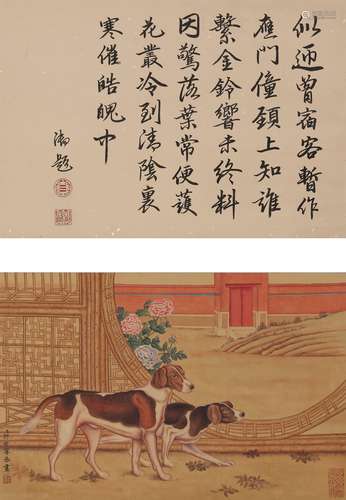 似迎曾宿客暫作
應門僮頸上知誰
繫金鈴響未終料
因驚落葉常便護
花叢冷到清陰裏
寒催皓魄中
御題